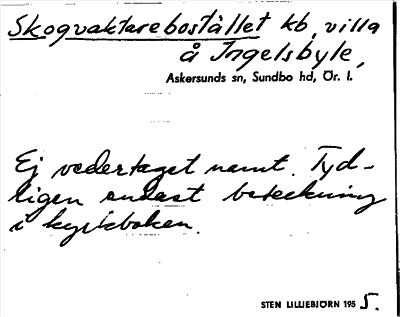 Skogvaktarebostället kb, villa
å Ingelsbyle,
Askersunds sn, Sundbo hd, Ör. l.
Ej vedertaget namt. Tyd-
ligen endast beteckning
i kyrkboken.
STEN LILLIEBJÖRN 195 5.